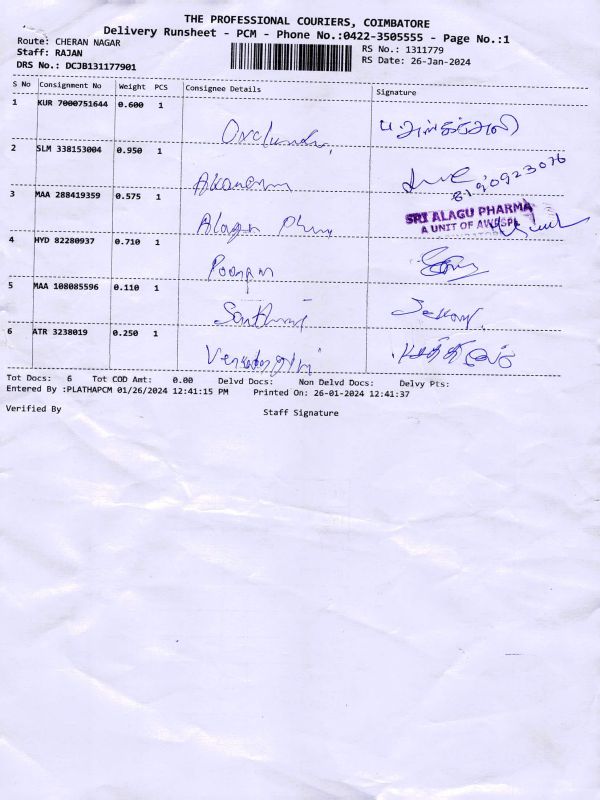 THE PROFESSIONAL COURIERS, COIMBATORE
Delivery Runsheet - PCM - Phone No.:0422-3505555 - Page No.:1
Route: CHERAN NAGAR
RS No.: 1311779
Staff: RAJAN
RS Date: 26-Jan-2024
DRS No.: DCJB131177901
S No Consignment No Weight PCS Consignee Details Signature
1 KUR 7000751644 0.600 1
2 SLM 338153004 0.950 1
8190923076
3 MAA 288419359 0.575 1 Alagu
SRI ALAGU PHARMA
A UNIT OF
4 HYD 82280937 0.710 1
5 MAA 108085596 0.110 1
6 ATR 3238019 0.250 1
Tot Docs: 6 Tot COD Amt: 0.00 Delvd Docs: Non Delvd Docs: Delvy Pts:
Entered By :PLATHAPCM 01/26/2024 12:41:15 PM Printed On: 26-01-2024 12:41:37
Verified By Staff Signature